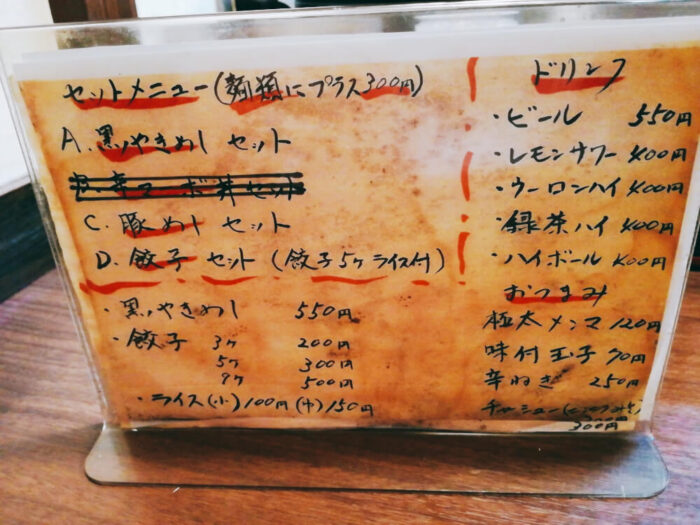 セットメニュー(麺類にプラス300円)
A. 黒いやきめし セット
C. 豚めし セット
D. 餃子 セット (餃子5ケ ライス付)
・黒いやきめし 550円
・餃子 3ケ 200円
5ケ 300円
9ケ 500円
・ライス(小)100円(中)150円
ドリンク
・ビール 550円
・レモンサワー 400円
・ウーロンハイ 400円
・緑茶ハイ 400円
・ハイボール 400円
おつまみ
極太メンマ 120円
味付玉子 90円
辛ねぎ 250円
チャーシュー
300円